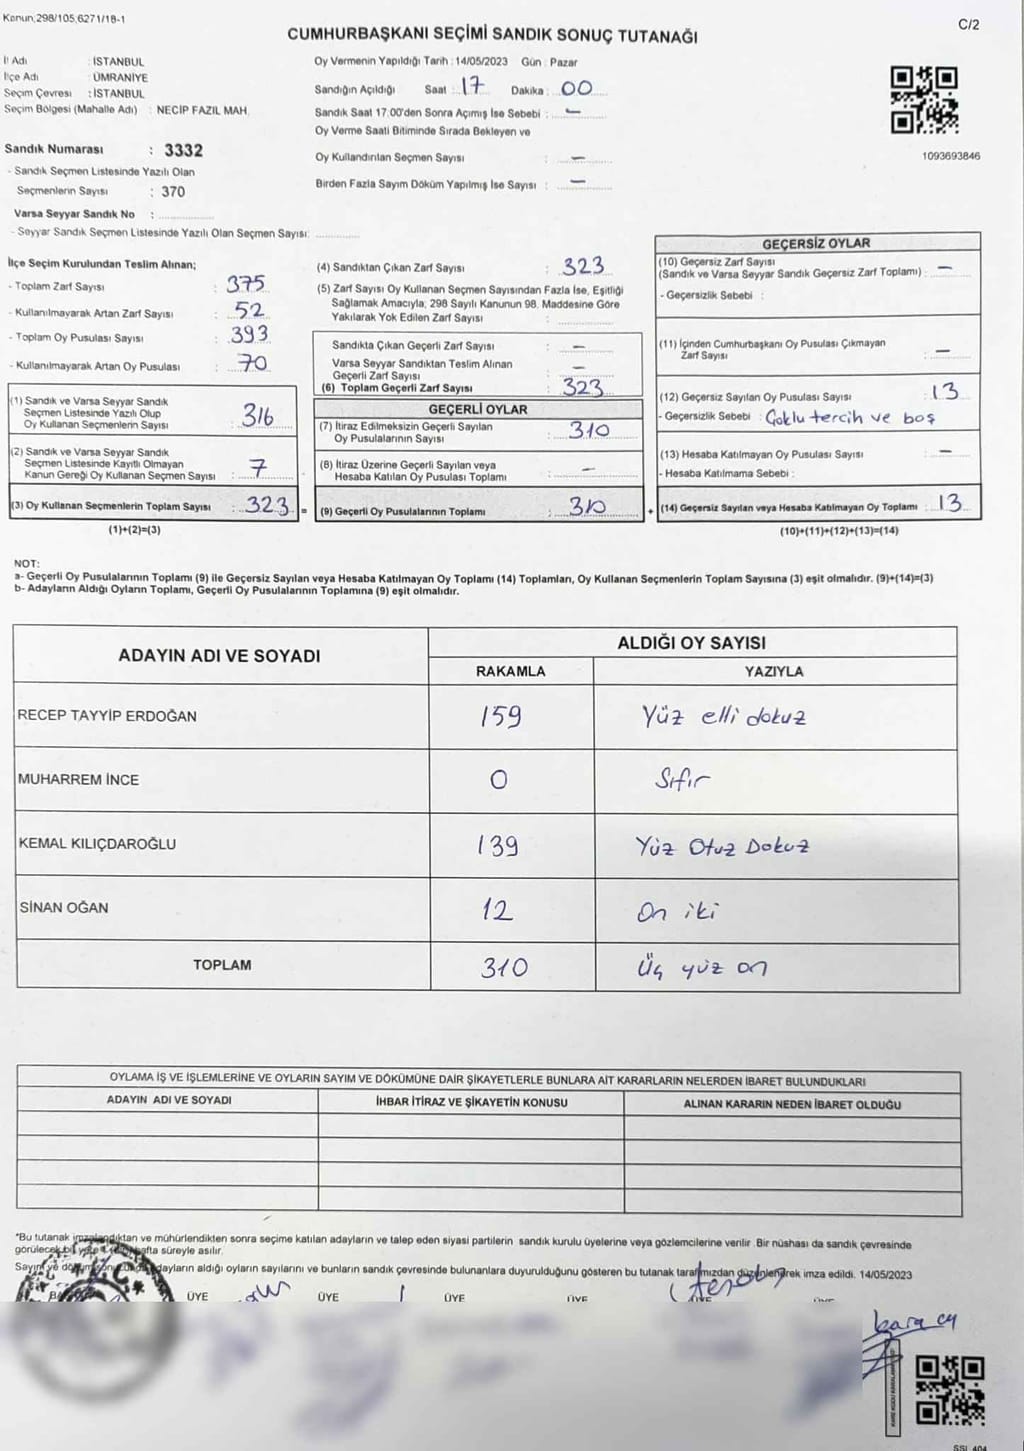 Kanun;298/105,6271/18-1
C/2
CUMHURBAŞKANI SEÇİMİ SANDIK SONUÇ TUTANAĞI
İl Adı : İSTANBUL
İlçe Adı : ÜMRANİYE
Seçim Çevresi : İSTANBUL
Seçim Bölgesi (Mahalle Adı) : NECİP FAZIL MAH.
Oy Vermenin Yapıldığı Tarih : 14/05/2023 Gün : Pazar
Sandığın Açıldığı Saat : 17 Dakika : 00
Sandık Saat 17:00'den Sonra Açımış İse Sebebi : –
Oy Verme Saati Bitiminde Sırada Bekleyen ve
Oy Kullandırılan Seçmen Sayısı : –
Birden Fazla Sayım Döküm Yapılmış İse Sayısı : –
1093693846
Sandık Numarası : 3332
- Sandık Seçmen Listesinde Yazılı Olan
Seçmenlerin Sayısı : 370
Varsa Seyyar Sandık No :
- Seyyar Sandık Seçmen Listesinde Yazılı Olan Seçmen Sayısı:
İlçe Seçim Kurulundan Teslim Alınan;
- Toplam Zarf Sayısı : 375
- Kullanılmayarak Artan Zarf Sayısı : 52
- Toplam Oy Pusulası Sayısı : 393
- Kullanılmayarak Artan Oy Pusulası : 70
(1) Sandık ve Varsa Seyyar Sandık
Seçmen Listesinde Yazılı Olup
Oy Kullanan Seçmenlerin Sayısı : 316
(2) Sandık ve Varsa Seyyar Sandık
Seçmen Listesinde Kayıtlı Olmayan
Kanun Gereği Oy Kullanan Seçmen Sayısı : 7
(3) Oy Kullanan Seçmenlerin Toplam Sayısı : 323 =
(1)+(2)=(3)
(4) Sandıktan Çıkan Zarf Sayısı : 323
(5) Zarf Sayısı Oy Kullanan Seçmen Sayısından Fazla İse, Eşitliği
Sağlamak Amacıyla; 298 Sayılı Kanunun 98. Maddesine Göre
Yakılarak Yok Edilen Zarf Sayısı :
Sandıkta Çıkan Geçerli Zarf Sayısı : –
Varsa Seyyar Sandıktan Teslim Alınan
Geçerli Zarf Sayısı : –
(6) Toplam Geçerli Zarf Sayısı : 323
GEÇERLİ OYLAR
(7) İtiraz Edilmeksizin Geçerli Sayılan
Oy Pusulalarının Sayısı : 310
(8) İtiraz Üzerine Geçerli Sayılan veya
Hesaba Katılan Oy Pusulası Toplamı : –
(9) Geçerli Oy Pusulalarının Toplamı : 310 +
GEÇERSİZ OYLAR
(10) Geçersiz Zarf Sayısı
(Sandık ve Varsa Seyyar Sandık Geçersiz Zarf Toplamı) : –
- Geçersizlik Sebebi :
(11) İçinden Cumhurbaşkanı Oy Pusulası Çıkmayan
Zarf Sayısı : –
(12) Geçersiz Sayılan Oy Pusulası Sayısı : 13
- Geçersizlik Sebebi : Çoklu tercih ve boş
(13) Hesaba Katılmayan Oy Pusulası Sayısı : –
- Hesaba Katılmama Sebebi :
(14) Geçersiz Sayılan veya Hesaba Katılmayan Oy Toplamı : 13
(10)+(11)+(12)+(13)=(14)
NOT:
a- Geçerli Oy Pusulalarının Toplamı (9) ile Geçersiz Sayılan veya Hesaba Katılmayan Oy Toplamı (14) Toplamları, Oy Kullanan Seçmenlerin Toplam Sayısına (3) eşit olmalıdır. (9)+(14)=(3)
b- Adayların Aldığı Oyların Toplamı, Geçerli Oy Pusulalarının Toplamına (9) eşit olmalıdır.
ADAYIN ADI VE SOYADI ALDIĞI OY SAYISI
RAKAMLA YAZIYLA
RECEP TAYYİP ERDOĞAN 159 Yüz elli dokuz
MUHARREM İNCE 0 Sıfır
KEMAL KILIÇDAROĞLU 139 Yüz Otuz Dokuz
SİNAN OĞAN 12 On iki
TOPLAM 310 Üç yüz on
OYLAMA İŞ VE İŞLEMLERİNE VE OYLARIN SAYIM VE DÖKÜMÜNE DAİR ŞİKAYETLERLE BUNLARA AİT KARARLARIN NELERDEN İBARET BULUNDUKLARI
ADAYIN ADI VE SOYADI İHBAR İTİRAZ VE ŞİKAYETİN KONUSU ALINAN KARARIN NEDEN İBARET OLDUĞU
*Bu tutanak imzalandıktan ve mühürlendikten sonra seçime katılan adayların ve talep eden siyasi partilerin sandık kurulu üyelerine veya gözlemcilerine verilir. Bir nüshası da sandık çevresinde
görülecek bir yere hafta süreyle asılır.
Sayım ve döküm adayların aldığı oyların sayılarını ve bunların sandık çevresinde bulunanlara duyurulduğunu gösteren bu tutanak tarafımızdan düzenlenerek imza edildi. 14/05/2023
ÜYE ÜYE ÜYE ÜYE